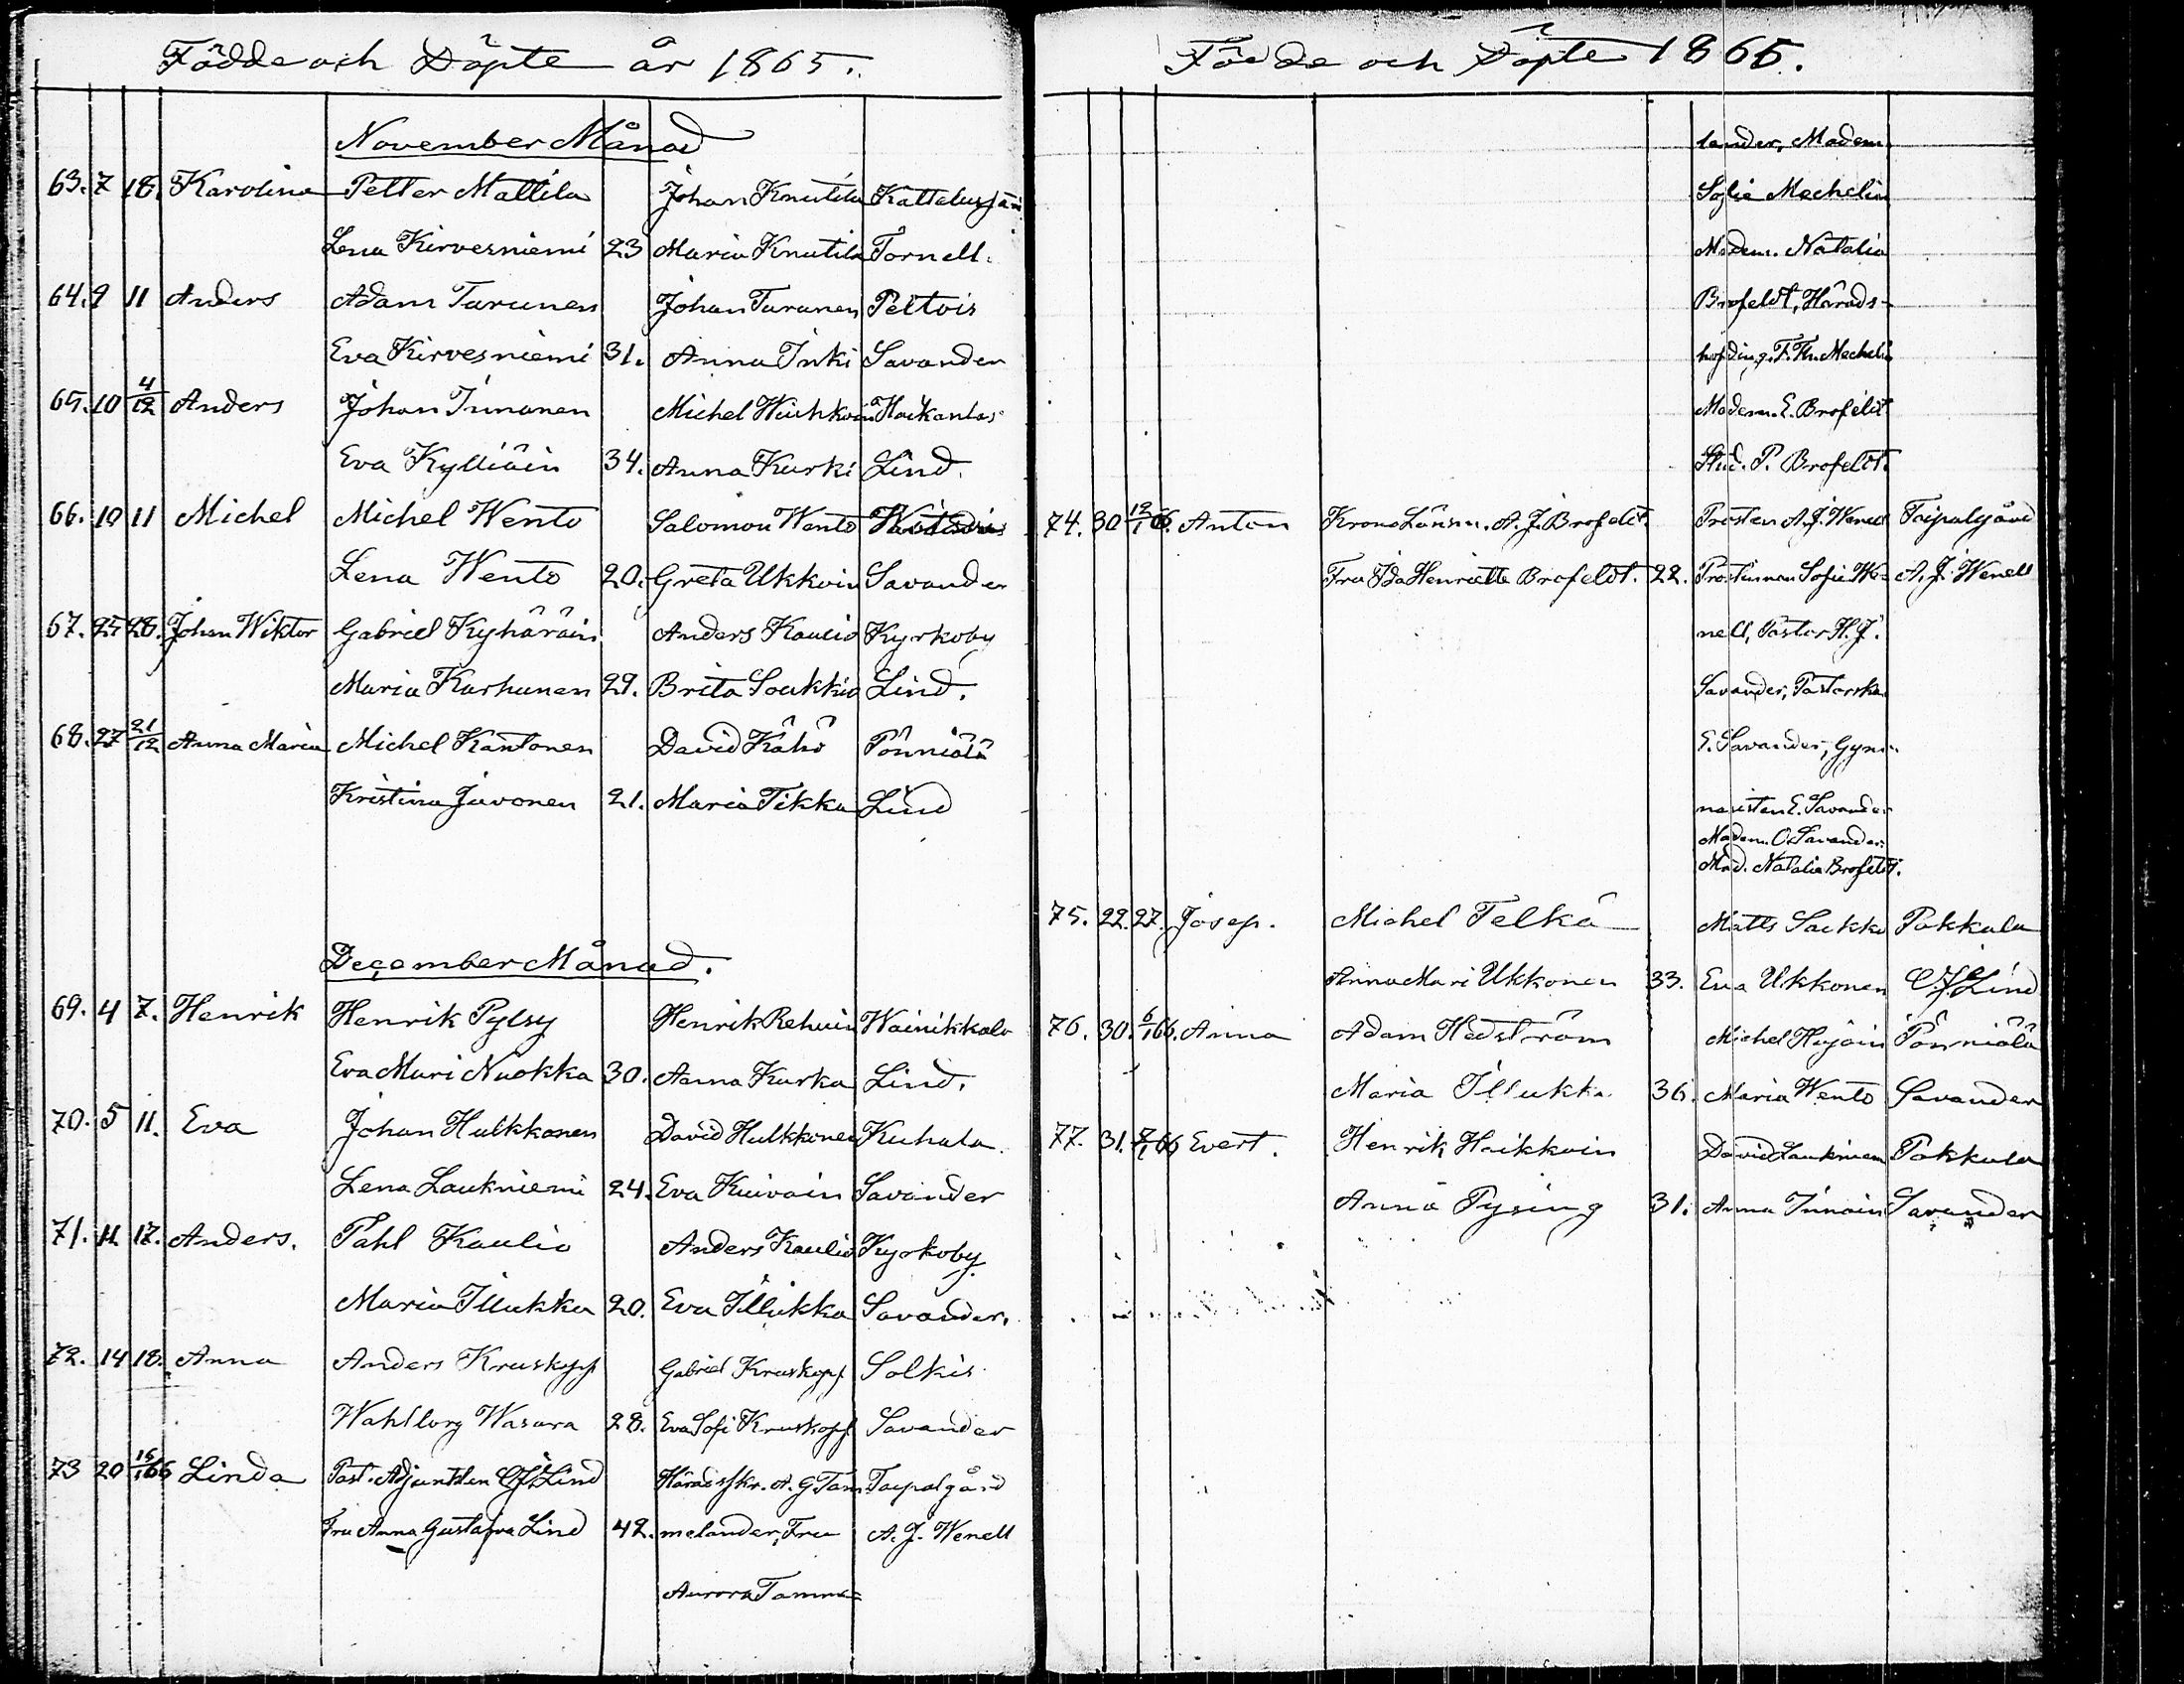 Födde och Döpte år 1865.
November Månad
63. 7 18. Karolina Petter Mattila Johan Knutila Kattelusjär
Lena Kirvesniemi 23 Maria Knutila Tornell.
64. 9 11 Anders Adam Turunen Johan Turunen Peltois
Eva Kirvesniemi 31. Anna Inki Savander
65. 10 4/12 Anders Johan Innanen Michel Hiuhkoin
Eva Kylliäin 34. Anna Kurki Lind.
66. 10 11 Michel Michel Wento Salomon Wento
Lena Wento 20. Greta Ukkoin Savander
67. 25 28. Johan Wiktor Gabriel Kyhäräin Anders Kaulio Kyrkoby
Maria Karhunen 29. Brita Soukkio Lind.
68. 27 21/12 Anna Maria Michel Kantonen David Kähö Pönniälä
Kristina Juvonen 21. Maria Tikka Lind
December Månad.
69. 4 7. Henrik Henrik Pylsy Henrik Rehuin Wainikkala
Eva Mari Nuokka 30. Anna Kurka Lind.
70. 5 11. Eva Johan Hulkkonen David Hulkkonen Kuhala.
Lena Laukniemi 24. Eva Kuivain Savander
71. 11 17. Anders. Påhl Kaulio Anders Kaulio Kyrkoby
Maria Illukka 20. Eva Illukka Savander.
72. 14 18. Anna Anders Kruskopf Gabriel Kruskopf Solkis
Wahlborg Wasara 28. Eva Sofi Kruskopf Savander
73 20 15/1 66 Linda Past. Adjunkten C J Lind Häradsskr. A. G Tam Taipalgård
Fru Anna Gustafva Lind 42. melander, Fru A. J. Wenell
Aurora Tamme=
Födde och Döpte 1865.
lander, Madem.
Sofie Mechelin
Madem. Natalia
Brofeldt, Härads-
höfding. F. Th. Mechelin
Madem. E. Brofeldt
Stud. P. Brofeldt.
74. 30 12/1 66. Anton Krono Länsm. A. J. Brofeldt. Prosten A. J. Wenell Taipalgård
Fru Ida Henriette Brofeldt. 22. Prostinnan Sofie We= A. J. Wenell
nell, Pastor H. J.
Savander, Pastorskan
E. Savander, Gym-
nasisten E. Savander
Madem. O. Savander.
Mad. Natalia Brofeldt.
75. 22. 27. Josep. Michel Telkä Matts Sackko Pakkala
Anna Mari Ukkonen 33. Eva Ukkonen C J Lind
76. 30. 6/1 66. Anna Adam Hedström Michel Hujain Pönniälä
Maria Illukka 36. Maria Wento Savander
77. 31. 7/1 66 Evert. Henrik Heikkoin David Laukniem Pakkala
Anna Pysing 31. Anna Innain Savander